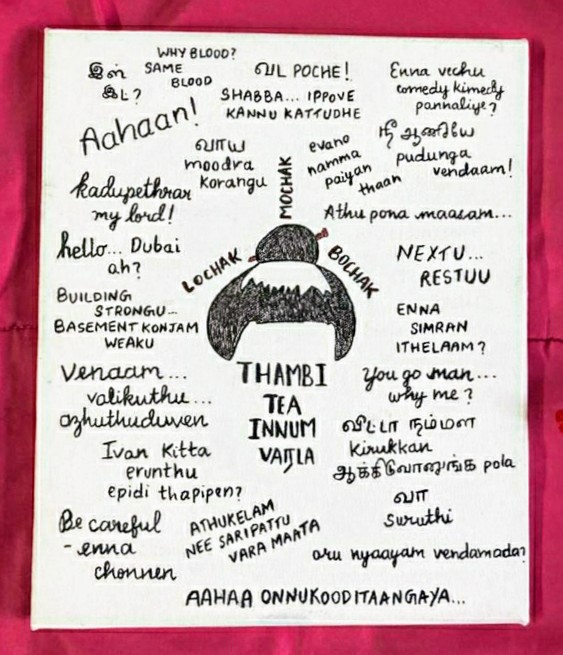 WHY BLOOD?
SAME
BLOOD
இஸ்
இட்?
வட POCHE!
Enna vechu
comedy kimedy
pannaliye?
Aahaan!
SHABBA... IPPOVE
KANNU KATTUDHE
வாய
moodra
korangu
MOCHAK
evano
namma
paiyan
thaan
நீ ஆணியே
pudunga
vendaam!
kadupethrar
my lord!
Athu pona maasam...
hello... Dubai
ah?
LOCHAK
BOCHAK
NEXTU...
RESTUU
BUILDING
STRONGU...
BASEMENT KONJAM
WEAKU
ENNA
SIMRAN
ITHELAAM?
THAMBI
TEA
INNUM
VARLA
Venaam...
valikuthu...
azhuthuduven
You go man...
why me?
விட்டா நம்மள
kirukkan
ஆக்கிடுவானுங்க pola
Ivan Kitta
erunthu
epidi thapipen?
வா
Suruthi
Be careful
-enna
chonnen
ATHUKELAM
NEE SARIPATTU
VARA MAATA
oru nyaayam vendamada?
AAHAA ONNUKOODITAANGAYA...